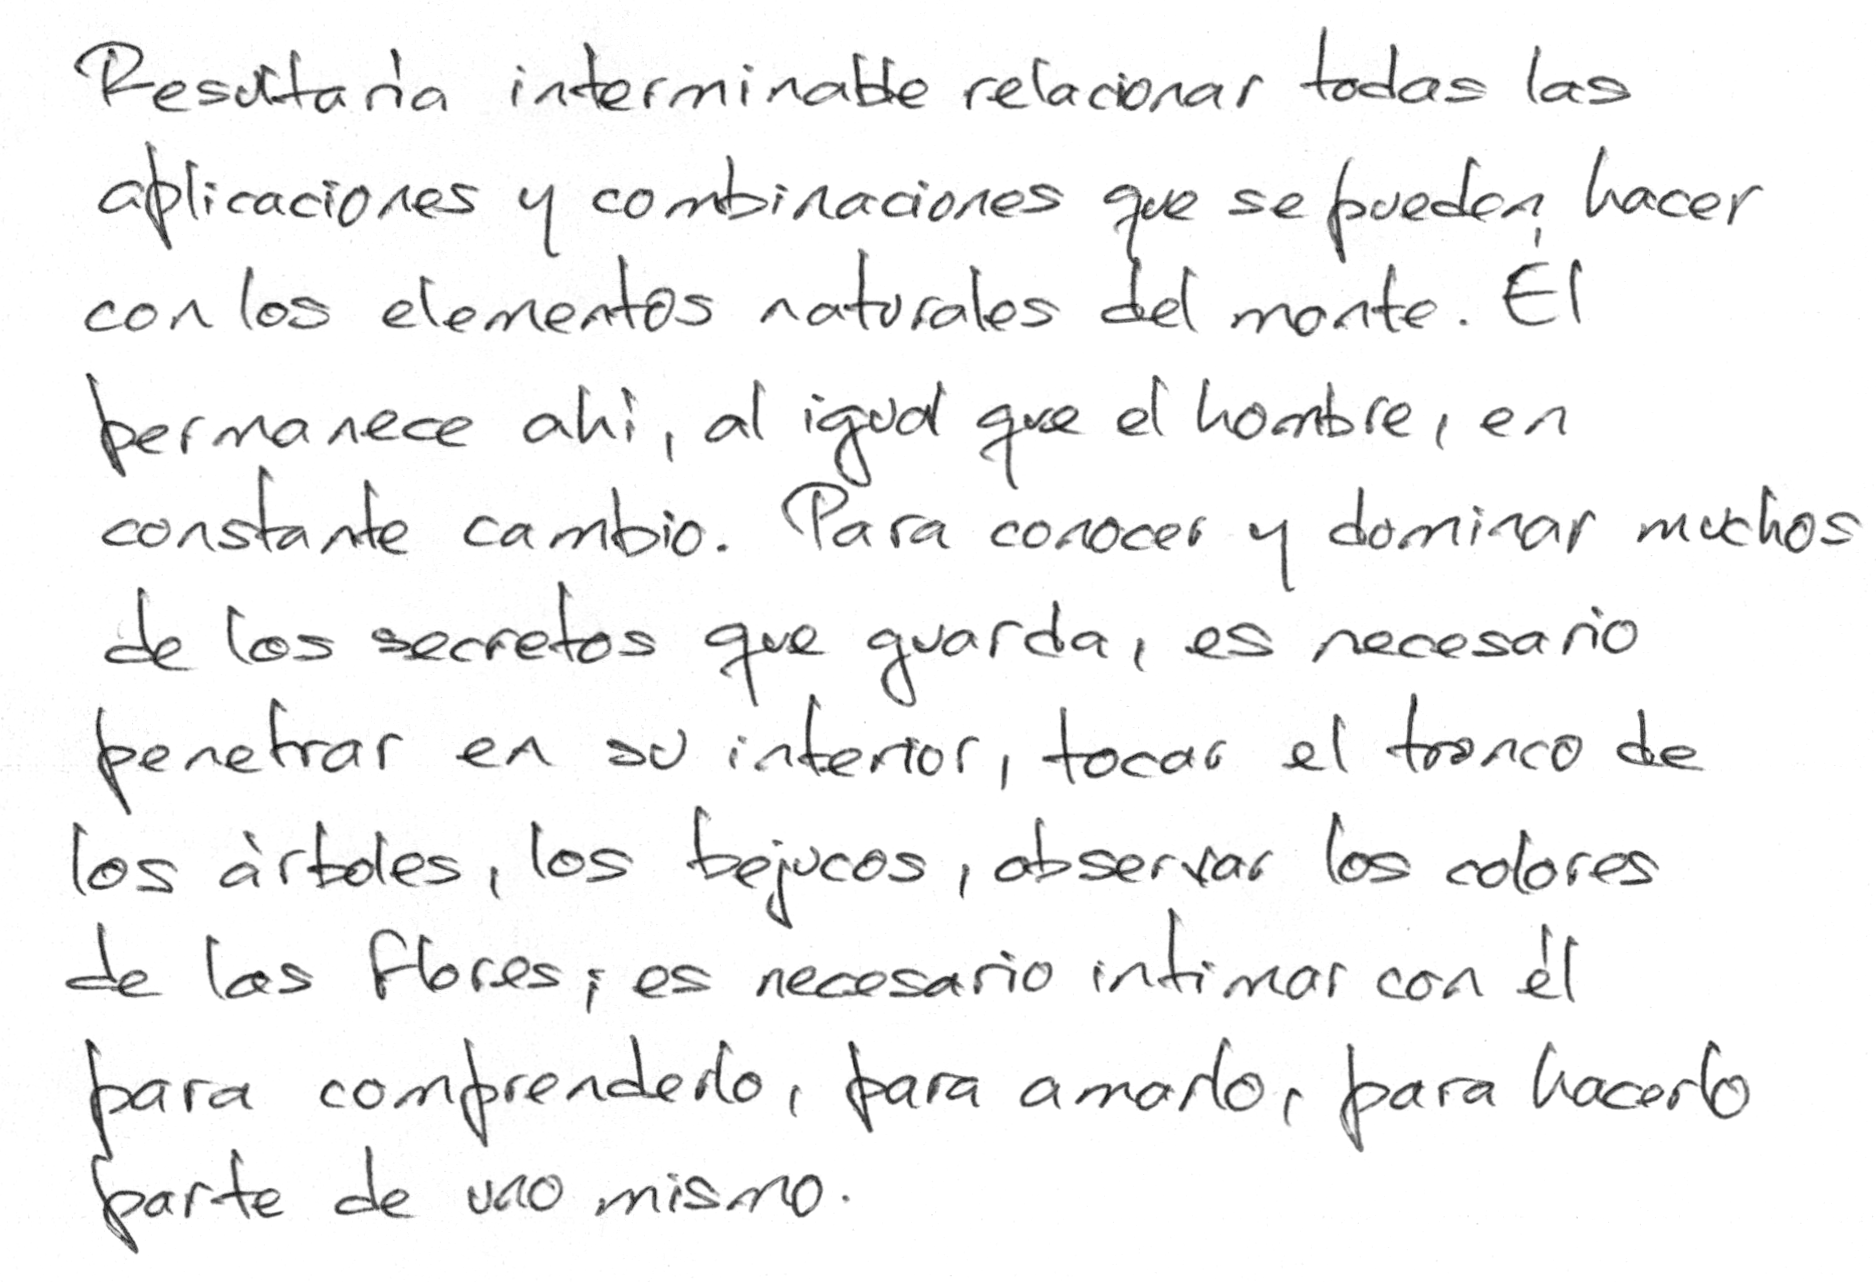 Resultaría interminable relacionar todas las
aplicaciones y combinaciones que se pueden hacer
con los elementos naturales del monte. Él
permanece ahí, al igual que el hombre, en
constante cambio. Para conocer y dominar muchos
de los secretos que guarda, es necesario
penetrar en su interior, tocar el tronco de
los árboles, los bejucos, observar los colores
de las flores; es necesario intimar con él
para comprenderlo, para amarlo, para hacerlo
parte de uno mismo.